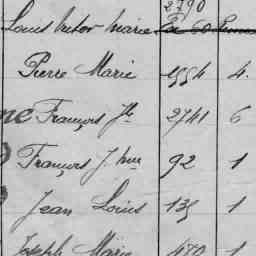 2790
Louis Victor Marie
Pierre Marie 1554 4.
François Jh 2741 6
François J. 92 1
Jean Louis 135 1
Joseph Marie 470 1